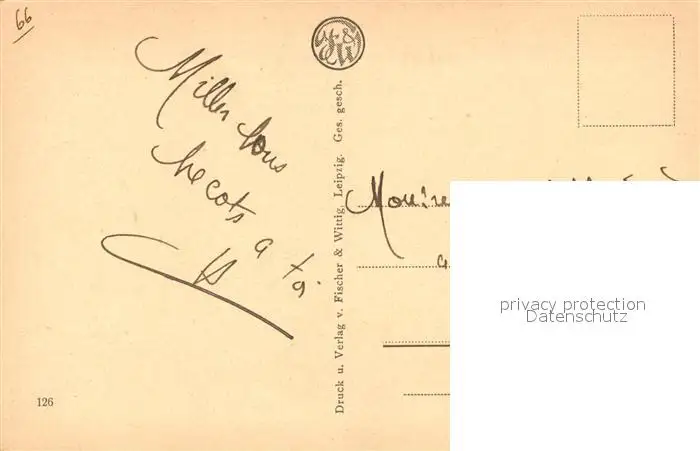 66
Milles bons
becots a toi
Druck u. Verlag v. Fischer & Wittig, Leipzig. Ges. gesch.
126
privacy protection
Datenschutz